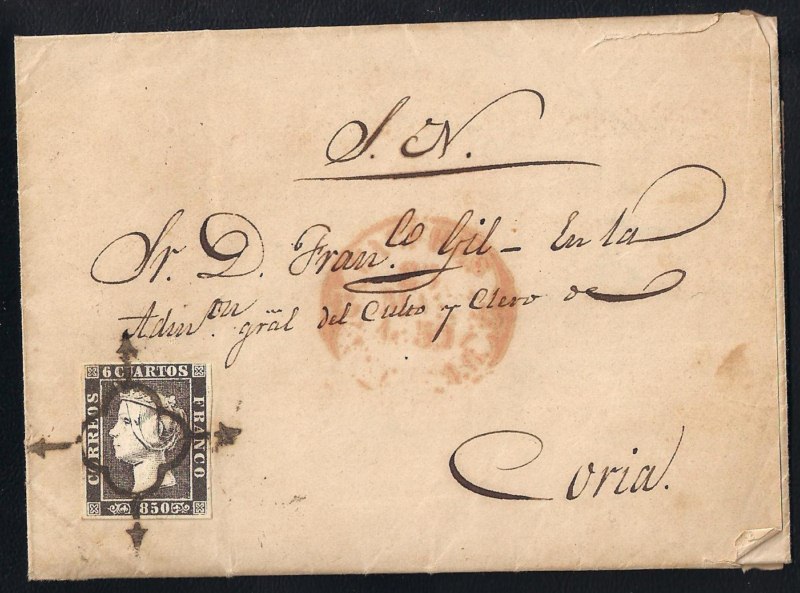 S. N.
Sr. D. Fran.co Gil - En la
Adm.on gräl del Culto y Clero de
Coria.
6 CUARTOS
CORREOS
FRANCO
1850